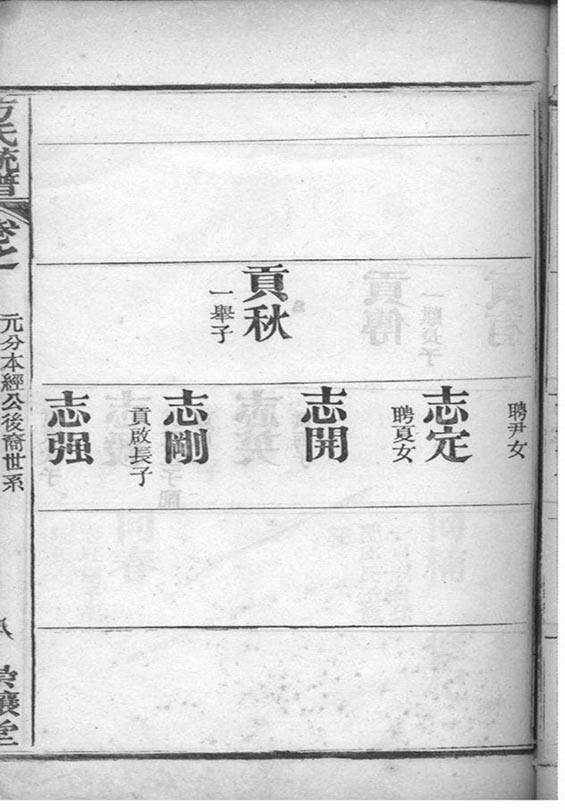 貢秋
一舉子
聘尹女
志定
聘夏女
志開
志剛
貢啟長子
志强
方氏統譜
卷之一
元分本經公後裔世系
堂